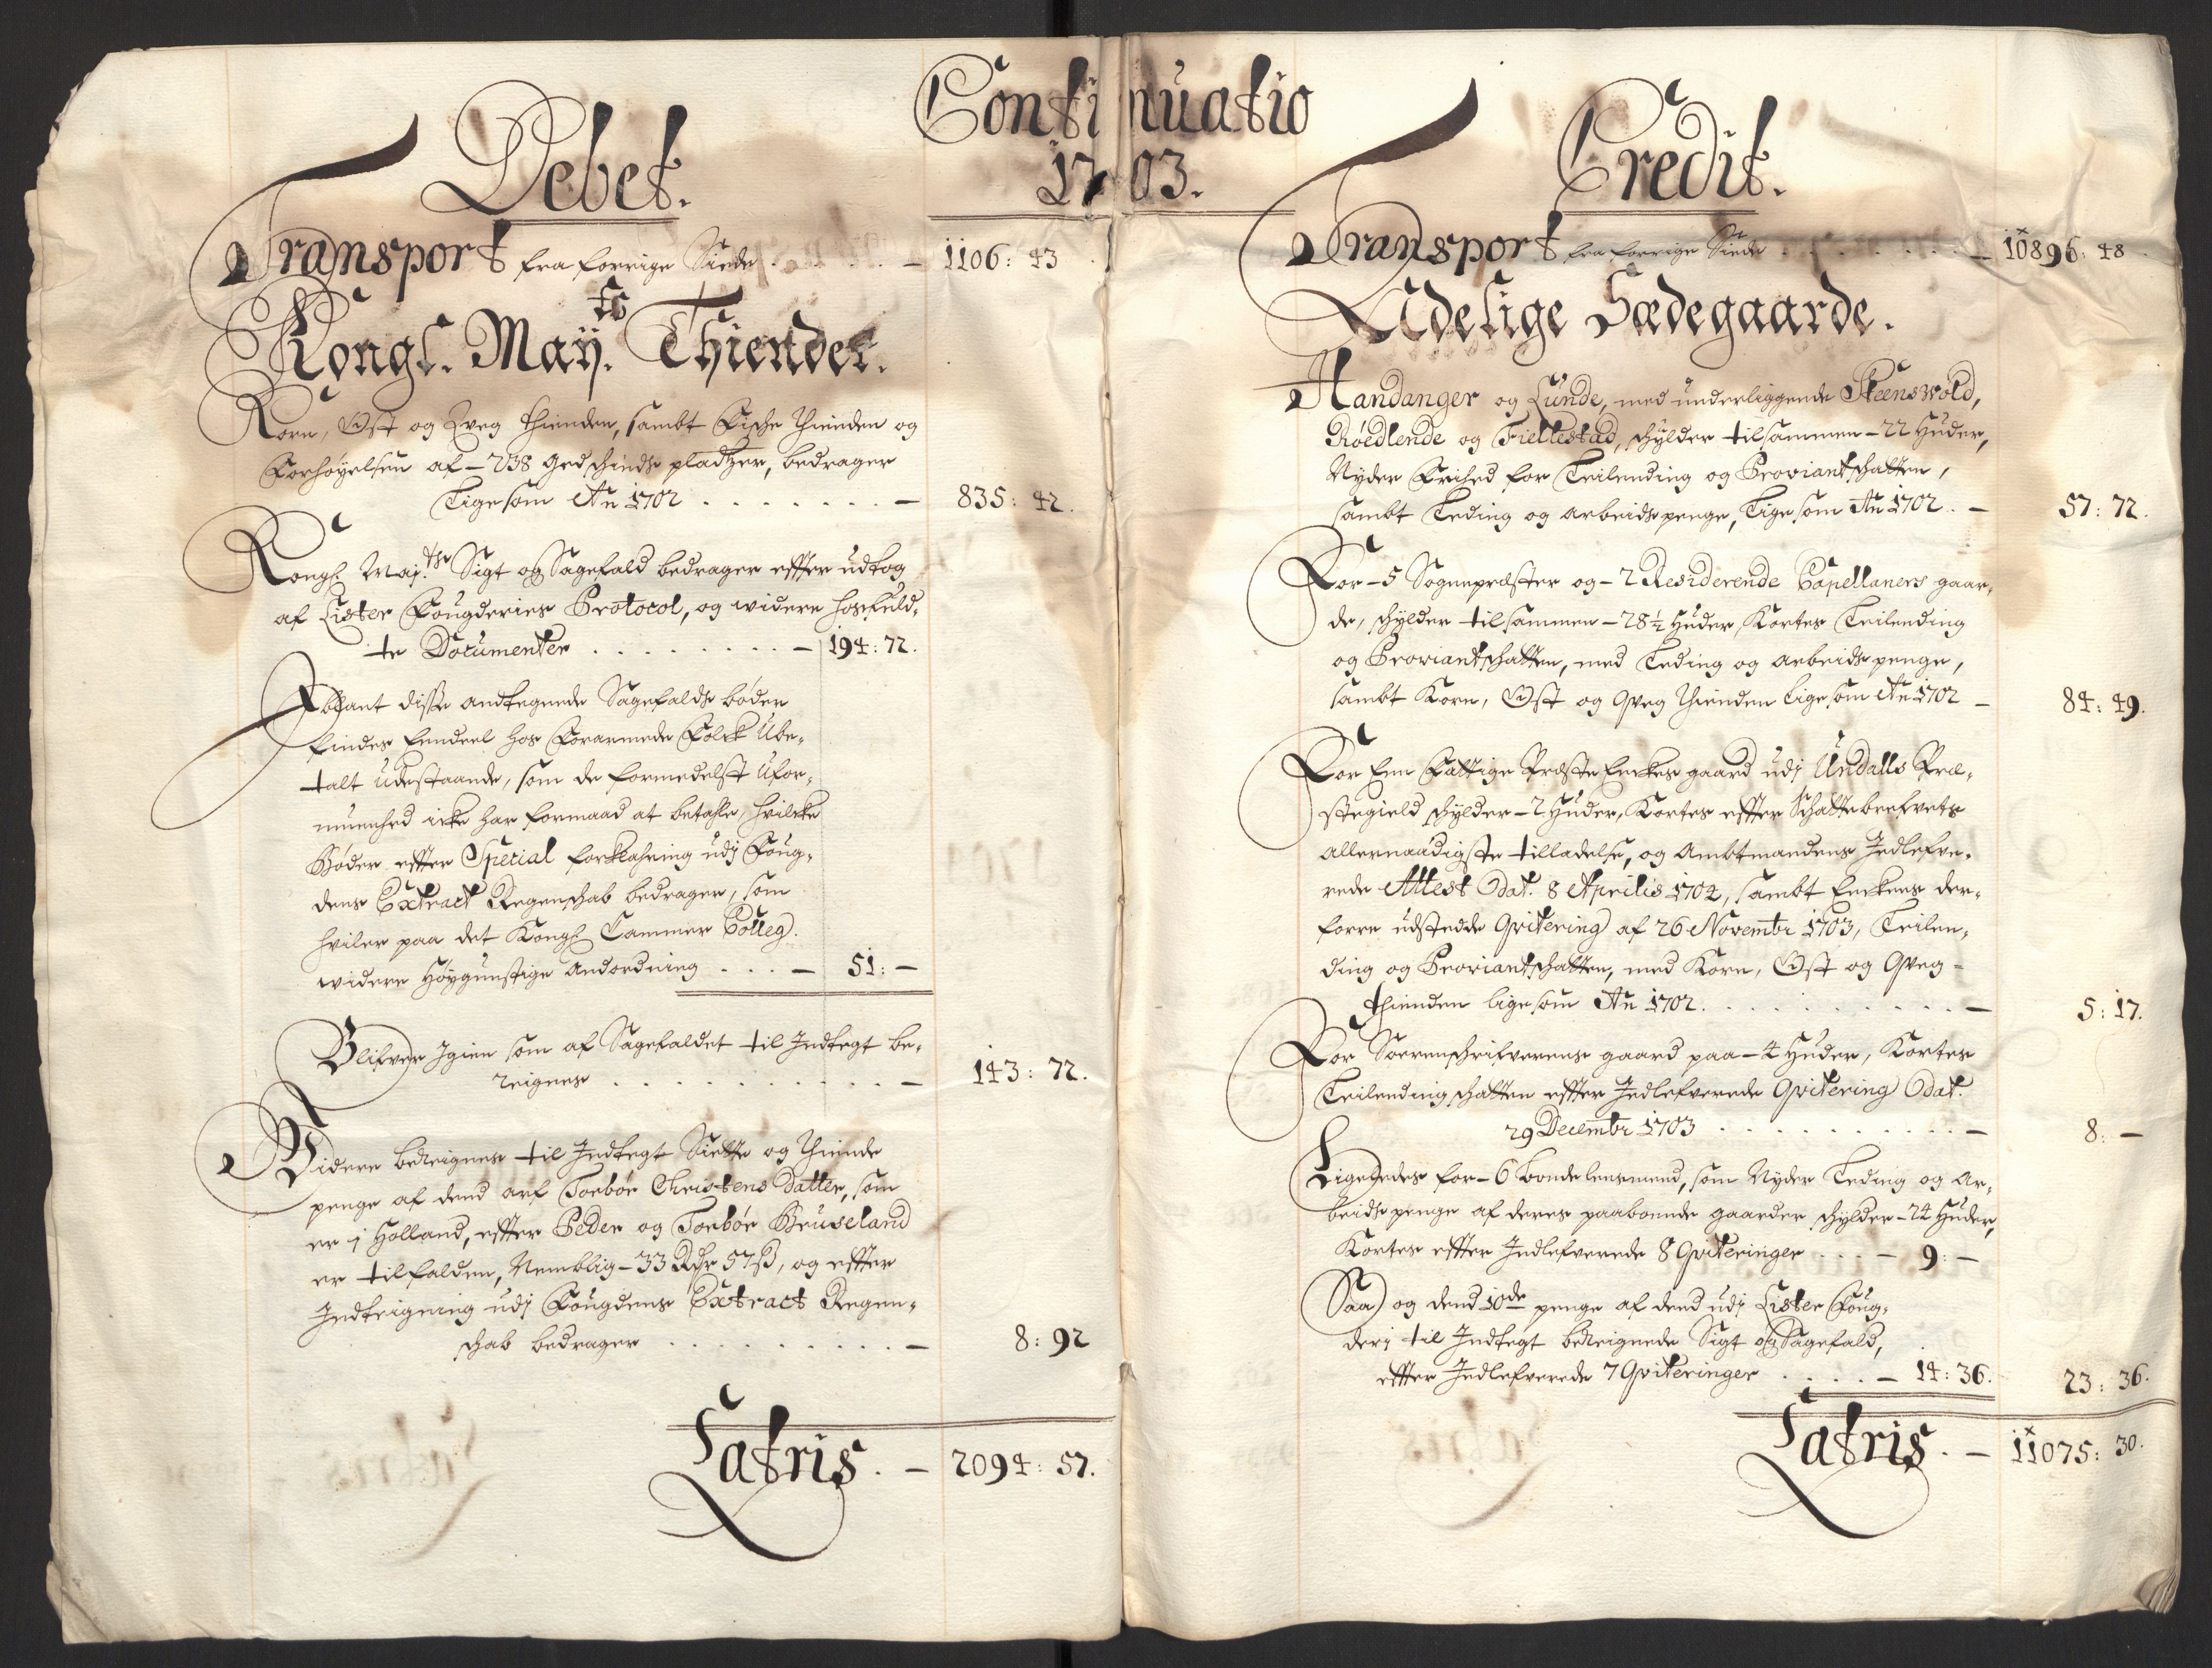 Continuatio
1703.
Debet.
Transport fra forrige Siede . . . — 1106: 43
Kongl. Maÿ.ts Thiender.
Korn, Ost og Qveg thienden, sambt Fische thienden og
Forhøyelsen af - 238 Gedschinds pladtzer, bedrager
Lige som Ao 1702 . . . . . . . — 835: 42.
Kongl. Maj.ts Sigt og Sagefald bedrager effter udtog
af Lister Fougderies Protocol, og widere hosfuld,
te Documenter . . . . . . . — 194: 72.
Iblant disse andtegnede Sagefalds bøder
findes eendeel hos Forarmede Folck Ube,
talt udestaande, som de formedelst Ufor,
muenhed icke har formaad at betahle, hvilcke
Bøder effter Special forklahring udj Foug,
dens Extract Regenschab bedrager, som
hviler paa det Kongl. Cammer Colleg.
widere Høygunstige Andordning . . . — 51: —
Blifver Igien som af Sagefaldet til Indtegt be,
reignes . . . . . . . . . — 143: 72.
Widere bereignes til Indtegt Siette og thiende
penge af dend arf Torbør Christens Datter, som
er j Holland, effter Peder og Torbør Bruseland
er tilfalden, Nemblig - 33 Rdr 57 ß, og effter
Indteigning udj Fougdens Extract Regen,
schab bedrager . . . . . . . . . — 8: 92
Latris. — 2094: 57.
Credit.
Transport fra forrige Siede . . . . . . — 10896: 48
Adelige Sædegaarde.
Handanger og Lunde, med underliggende Steenswold,
Røedlende og Fiellestad, schylder tilsammen - 22 Huder,
Nyder Frihed for Leilending og Proviantschatten,
sambt Leding og arbeidspenge, Lige som Ao 1702. — 57: 72.
For - 5 Sognepræster og - 2 Residerende Capellaners gaar,
de, schylder tilsammen - 28½ Huder, Kortes Leilending
og Proviantschatten, med Leding og arbeids penge,
sambt Korn, Ost og Qveg thienden lige som Ao 1702 — 84: 49.
For Een Fattige Præste Enckes gaard udj Undalls Præ,
stegield schylder - 2 Huder, Kortes effter Schattebrefvets
allernaadigste tilladelse, og Ambtmandens Indlefve,
rede Attest Dat. 8 Aprilis 1702, sambt Enckens der,
forre udstedde Qvitering af 26 Novembr 1703, Leilen,
ding og Proviantschatten, med Korn, Ost og Qveg -
thienden lige som Ao 1702. . . . . . . . — 5: 17.
For Sorenschrifverens gaard paa - 4 Huder, Kortes
Leilending schatten effter Indlefverede Qvitering Dat.
29 Decembr 1703 . . . . . . . . . — 8: —
Ligeledes for - 6 Bondelensmend, som Nyder Leding og Ar,
beids penge af deres paaboende gaarder schylder - 24 Huder,
Kortes effter Indlefverede 8 Qviteringer . . . — 9: —
Saa og dend 10de penge af dend udj Lister Foug,
derj til Indtegt bereignede Sigt og Sagefald,
effter Indlefverede 7 Qviteringer . . . . — 14: 36. 23: 36.
Latris. — 11075: 30.